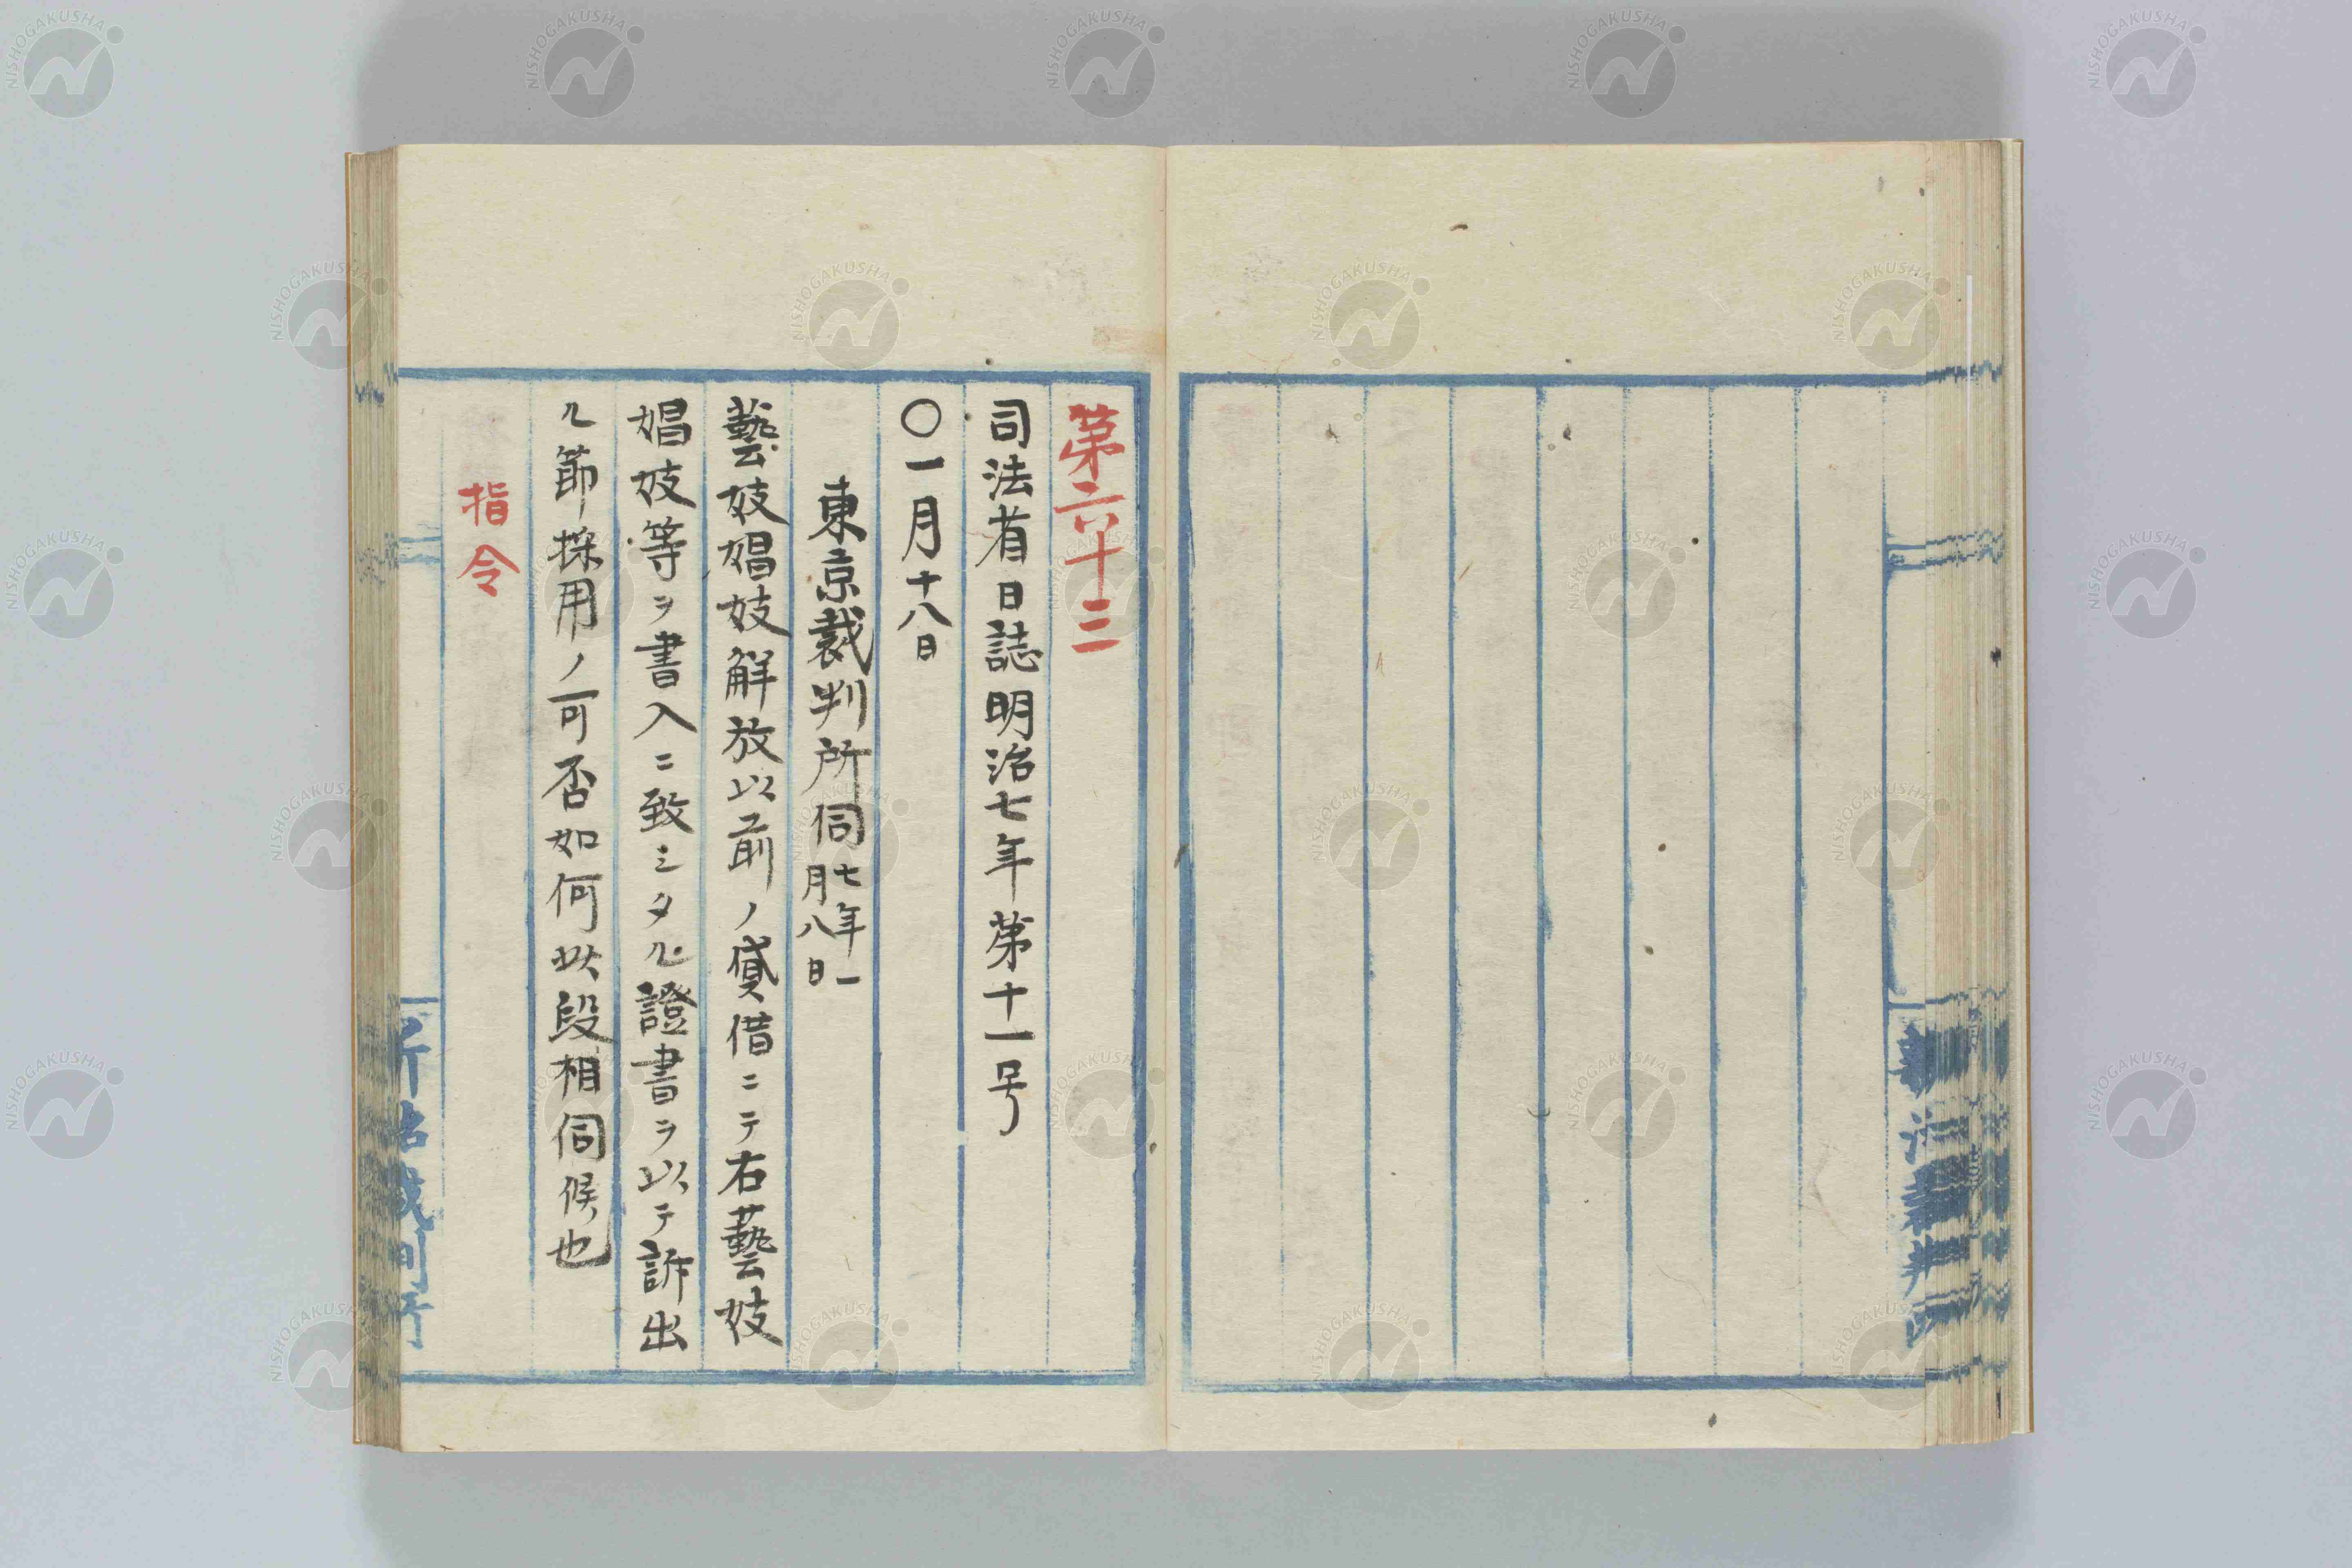 第六十三
司法省日誌明治七年第十一号
〇一月十八日
東京裁判所伺七年一月八日
藝妓娼妓解放以前ノ貸借ニテ右藝妓
娼妓等ヲ書入ニ致シタル證書ヲ以テ訴出
ル節採用ノ可否如何此段相伺候也
指令